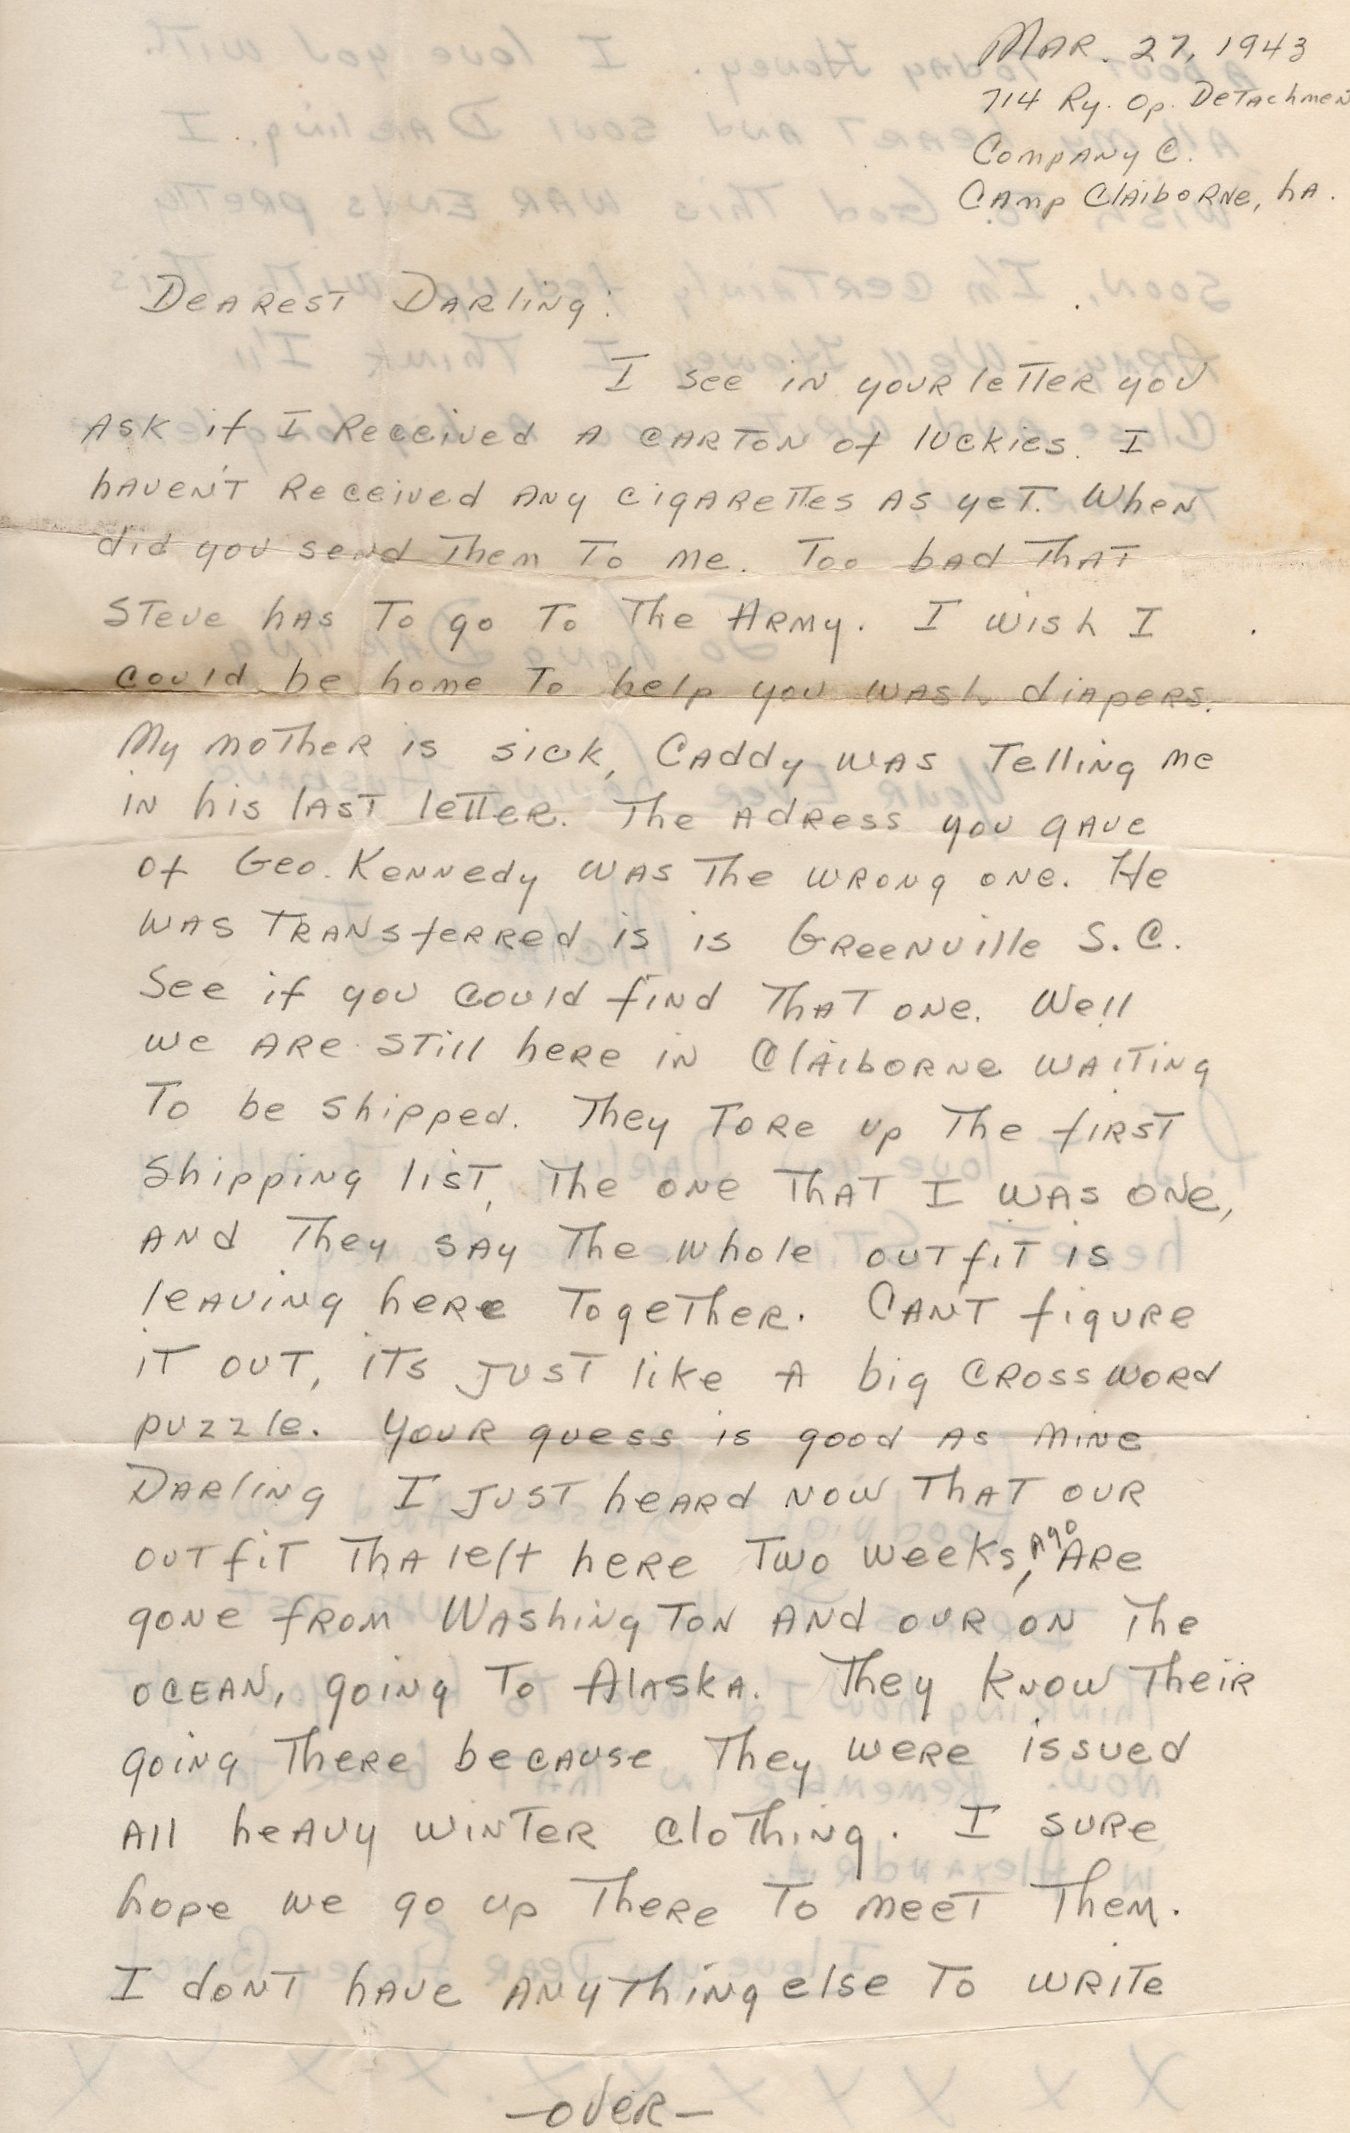 Mar. 27, 1943
714 Ry. Op. Detachmen
Company C.
Camp Claiborne, La.
Dearest Darling:
I see in your letter you
ask if I received a carton of luckies. I
haven't received any cigarettes as yet. When
did you send them to me. Too bad that
Steve has to go to the Army. I wish I
could be home to help you wash diapers.
My mother is sick, Caddy was telling me
in his last letter. The adress you gave
of Geo. Kennedy was the wrong one. He
was transferred is is Greenville S.C.
See if you could find that one. Well
we are still here in Claiborne waiting
to be shipped. They tore up the first
shipping list, the one that I was one,
and they say the whole outfit is
leaving here together. Can't figure
it out, its just like a big crossword
puzzle. Your guess is good as mine
Darling I just heard now that our
outfit tha left here two weeks, ago are
gone from Washington and our on the
ocean, going to Alaska. They know their
going there because they were issued
all heavy winter clothing. I sure
hope we go up there to meet them.
I dont have anything else to write
-over-